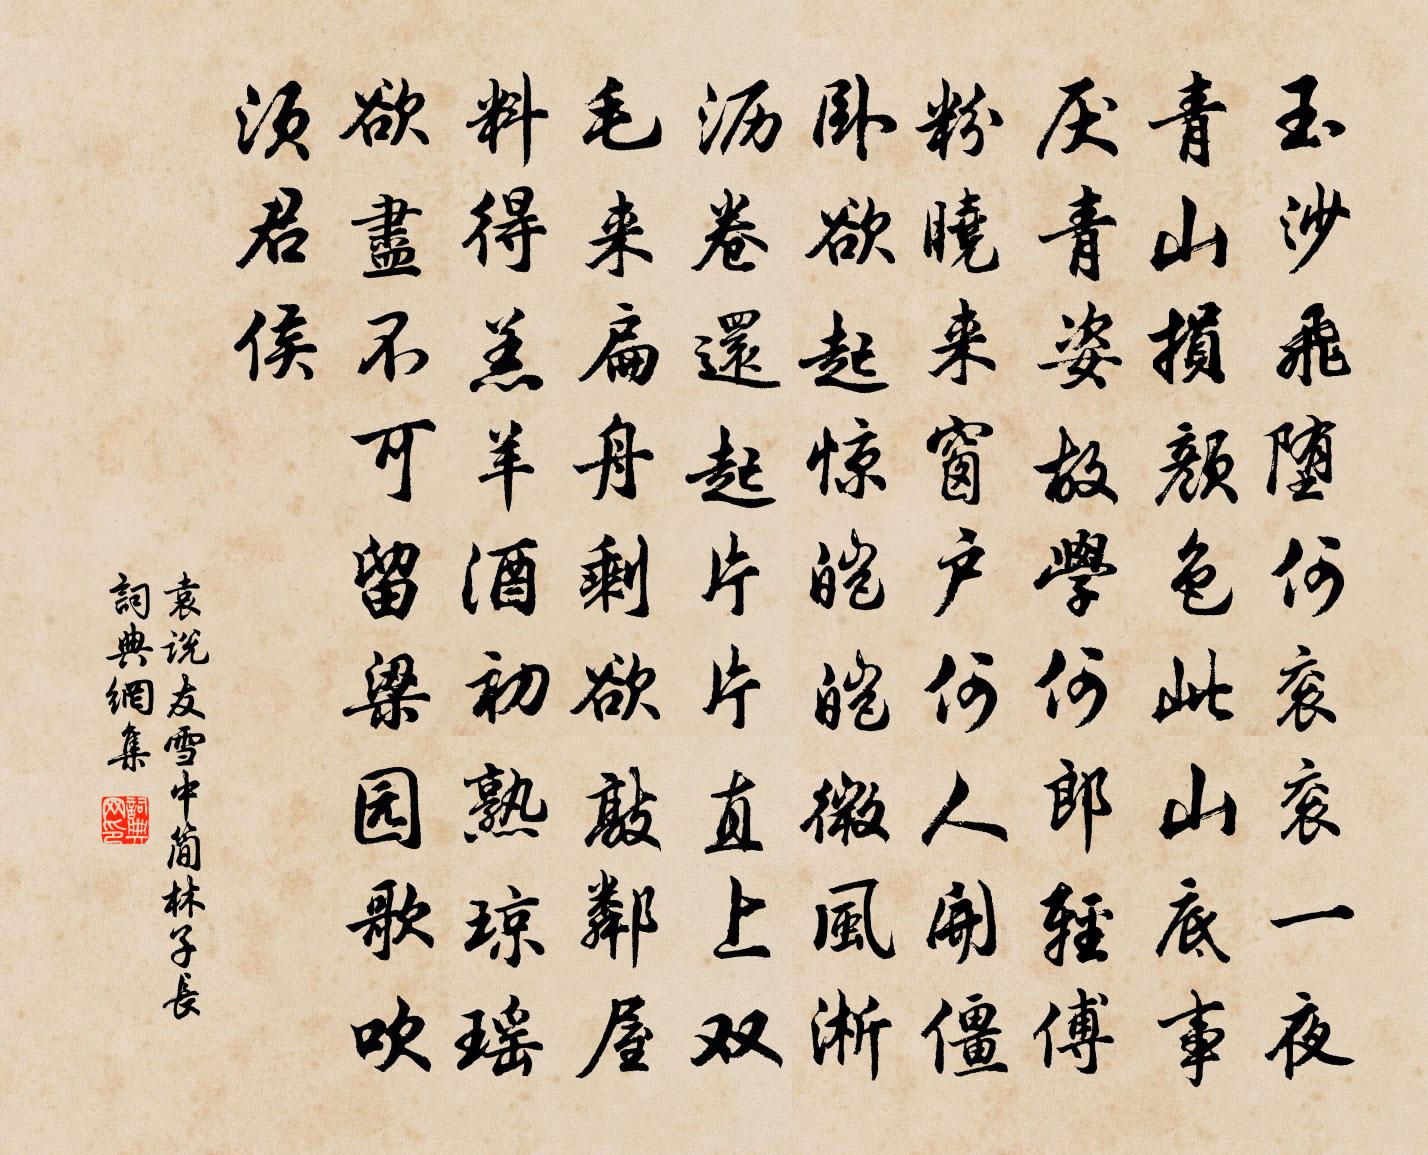 玉沙飛堕何衮衮一夜
青山損顔色此山底事
厌青姿故學何郎輕傅
粉曉来窗户何人開僵
卧欲起惊皑皑微風淅
沥卷還起片片直上双
毛来扁舟剩欲敲鄰屋
料得羔羊酒初熟琼瑶
欲盡不可留梁园歌吹
须君侯
袁说友雪中简林子長
詞典網集
詞典网印